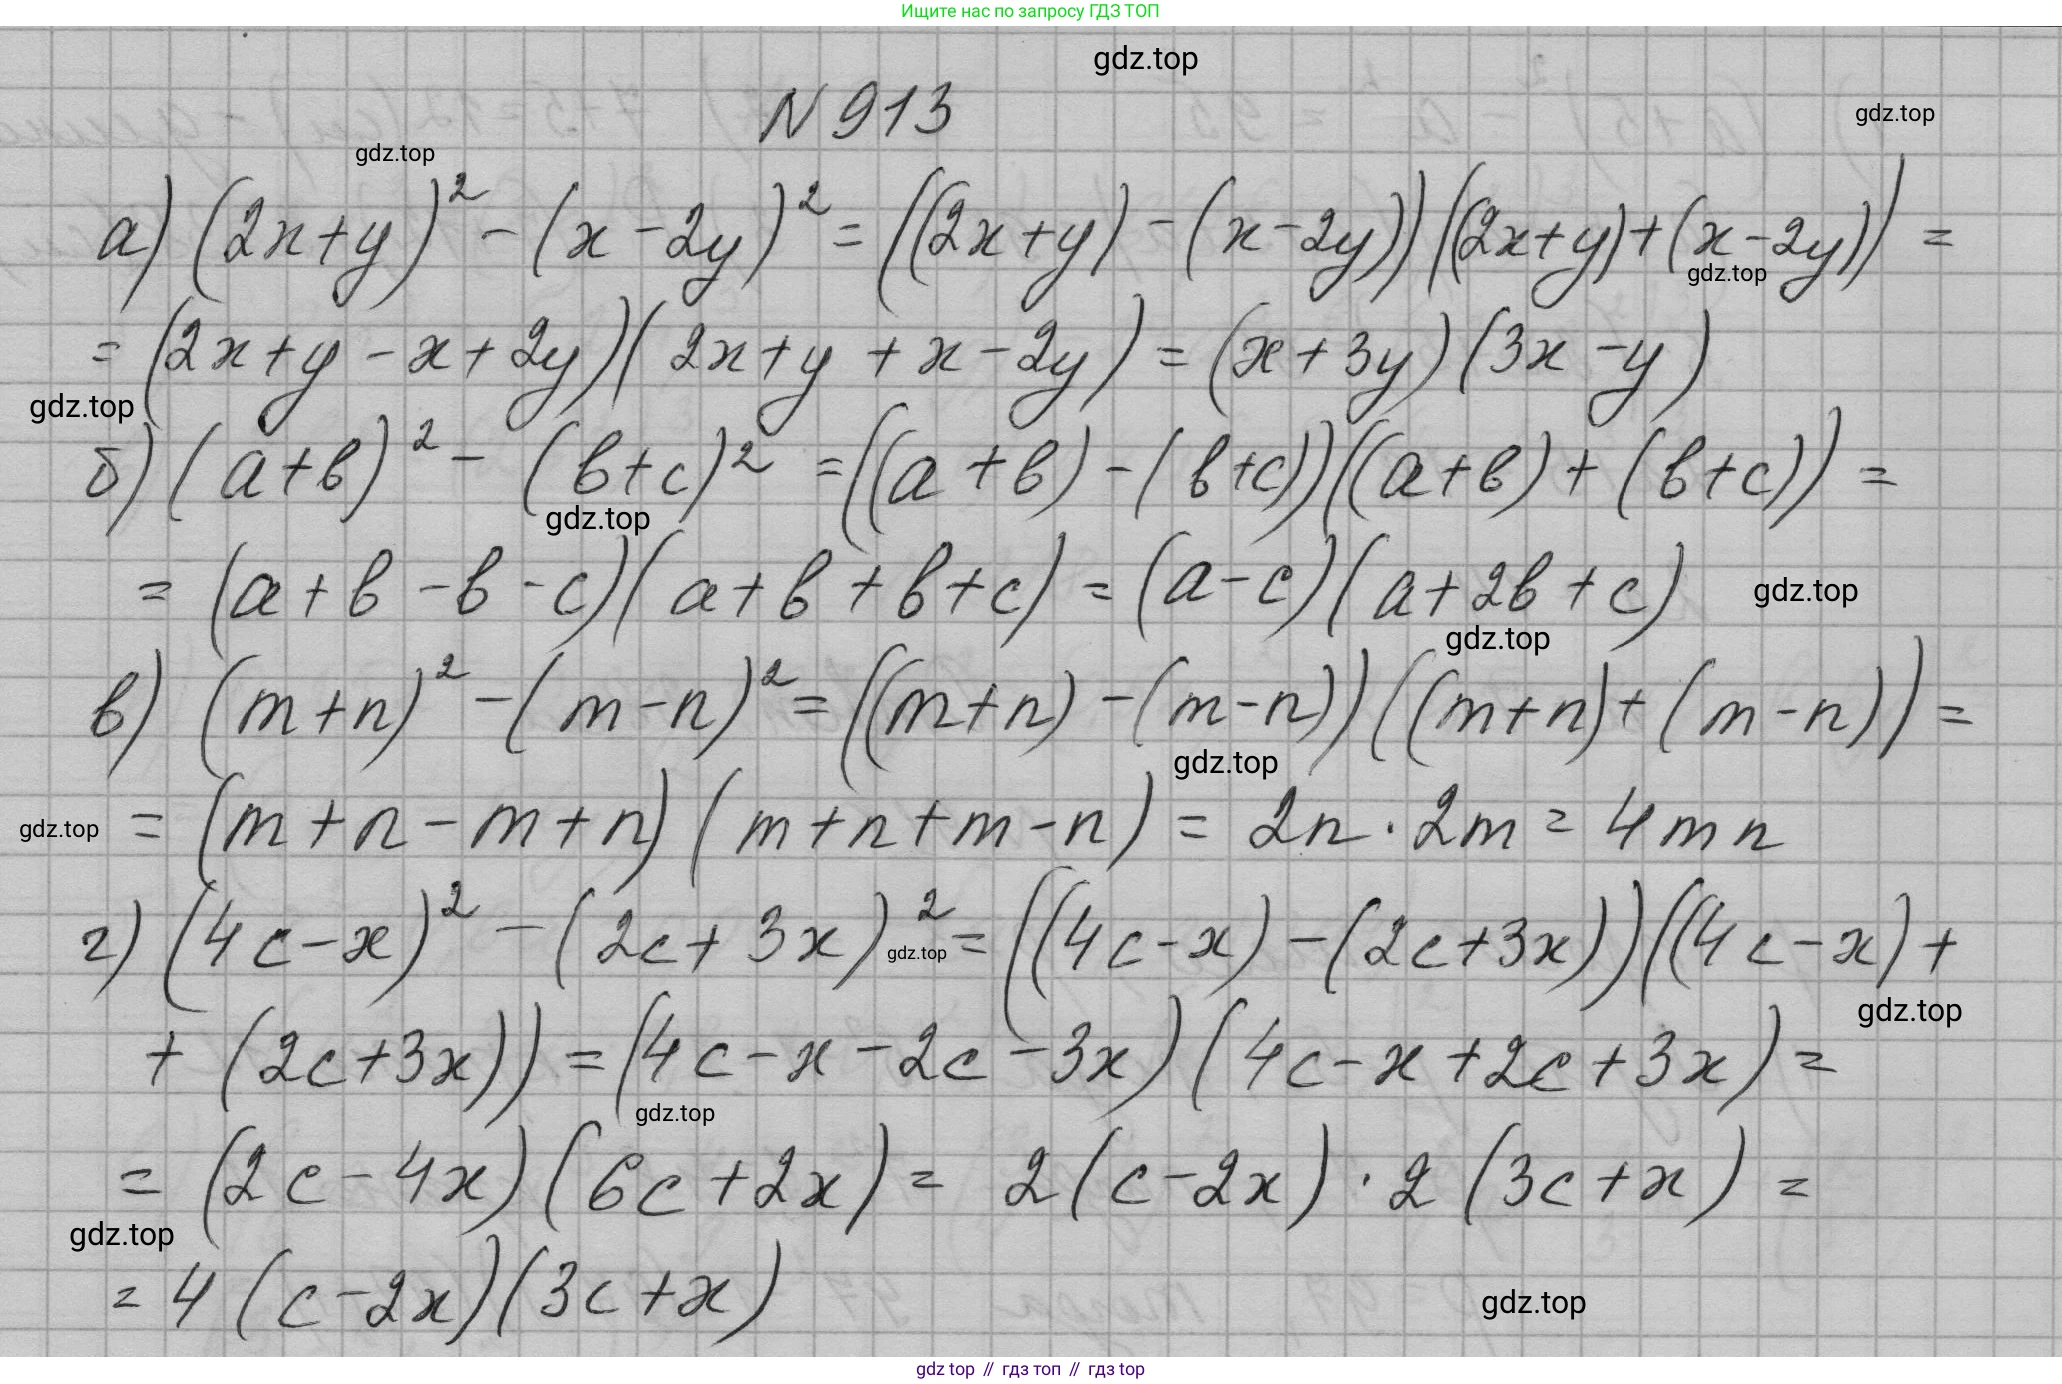 Ищите нас по запросу ГДЗ ТОП
gdz.top
N 913
gdz.top
gdz.top
а) (2x+y)² - (x-2y)² = ((2x+y) - (x-2y))((2x+y)+(x-2y)) =
gdz.top
= (2x+y-x+2y)(2x+y+x-2y) = (x+3y)(3x-y)
gdz.top
б) (a+b)² - (b+c)² = ((a+b)-(b+c))((a+b)+(b+c)) =
gdz.top
= (a+b-b-c)(a+b+b+c) = (a-c)(a+2b+c)
gdz.top
gdz.top
в) (m+n)² - (m-n)² = ((m+n)-(m-n))((m+n)+(m-n)) =
gdz.top
= (m+n-m+n)(m+n+m-n) = 2n·2m = 4mn
gdz.top
г) (4c-x)² - (2c+3x)² = ((4c-x)-(2c+3x))((4c-x)+
gdz.top
gdz.top
+ (2c+3x)) = (4c-x-2c-3x)(4c-x+2c+3x) =
gdz.top
= (2c-4x)(6c+2x) = 2(c-2x)·2(3c+x) =
gdz.top
= 4(c-2x)(3c+x)
gdz.top
gdz top // гдз топ // гдз top